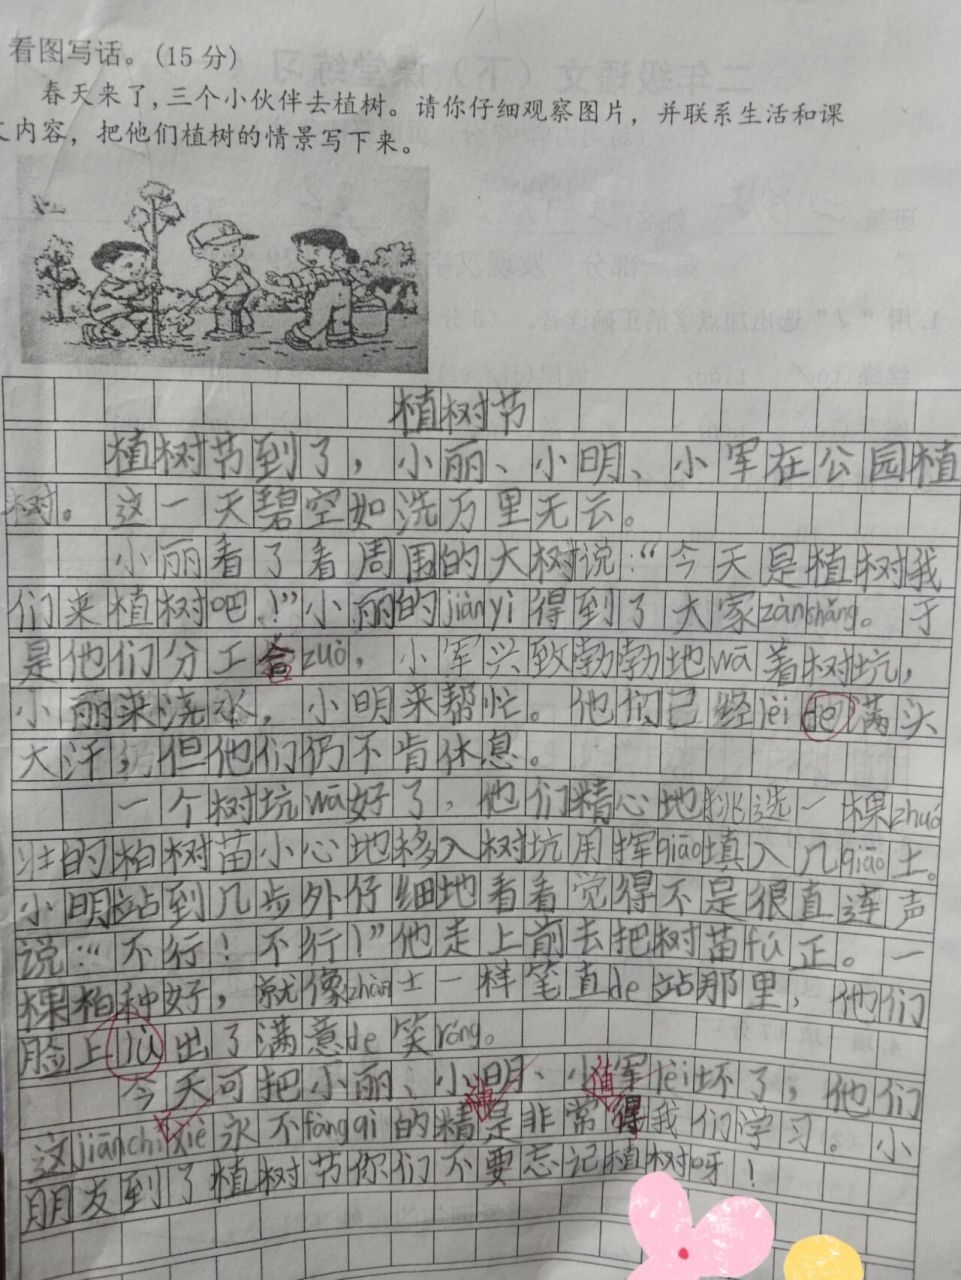 看图写话。(15分)
春天来了,三个小伙伴去植树。请你仔细观察图片,并联系生活和课
文内容,把他们植树的情景写下来。
植树节
植树节到了,小丽、小明、小军在公园植
树。这一天碧空如洗万里无云。
小丽看了看周围的大树说:“今天是植树我
们来植树吧!”小丽的jiànyì得到了大家zànshǎng。于
是他们分工合zuò,小军兴致勃勃地wā着树坑,
小丽来浇水,小明来帮忙。他们已经lèi de满头
大汗,但他们仍不肯休息。
一个树坑wā好了,他们精心地挑选一棵zhuó
壮的柏树苗小心地移入树坑用挥qiāo填入几qiāo土。
小明站到几步外仔细地看看觉得不是很直连声
说:“不行!不行!”他走上前去把树苗fú正。一
棵柏种好,就像zhàn士一样笔直de站那里,他们
脸上lù出了满意de笑róng。
今天可把小丽、小明、小军lèi坏了,他们
这jiānchí xiè永不fàngqì的精神是非常值得我们学习。小
朋友到了植树节你们不要忘记植树呀!